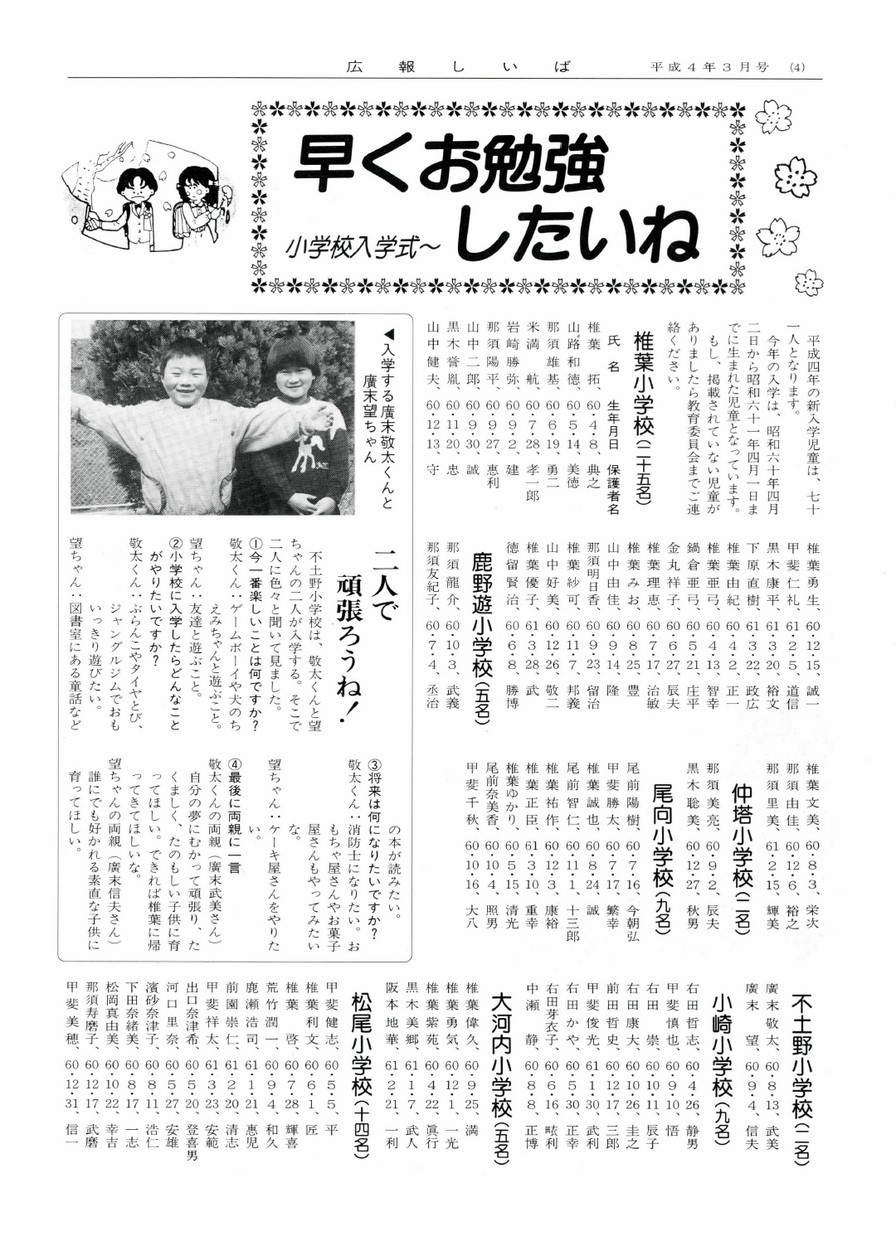 広報しいば
平成4年3月号 (4)
早くお勉強
したいね
小学校入学式〜
平成四年の新入学児童は、七十
一人となります。
今年の入学は、昭和六十年四月
二日から昭和六十一年四月一日ま
でに生まれた児童となっています。
もし、掲載されていない児童が
ありましたら教育委員会までご連
絡ください。
椎葉小学校(二十五名)
氏名 生年月日 保護者名
椎葉 拓、60・4・8、典之
山路和徳、60・5・14、美徳
那須雄基、60・6・19、勇二
米満 航、60・7・28、孝一郎
岩崎勝弥、60・9・2、建
那須陽平、60・9・27、惠利
山中二郎、60・9・30、誠
黒木誉胤、60・11・20、忠
山中健夫、60・12・13、守
椎葉勇生、60・12・15、誠一
甲斐仁礼、61・2・5、道信
黒木康平、61・3・20、裕文
下原直樹、61・3・22、政広
椎葉由紀、60・4・2、正一
椎葉亜弓、60・4・13、智幸
鍋倉亜弓、60・5・21、庄平
金丸祥子、60・6・27、辰夫
椎葉理恵、60・7・17、治敏
椎葉みお、60・8・25、豊
山中由佳、60・9・14、隆
那須明日香、60・9・23、留治
椎葉紗可、60・11・7、邦義
山中好美、60・12・26、敬二
椎葉優子、61・3・28、武
徳留賢治、60・6・8、勝博
鹿野遊小学校(五名)
那須龍介、60・10・3、武義
那須友紀子、60・7・4、丞治
椎葉文美、60・8・3、栄次
那須由佳、60・12・6、裕之
那須里美、61・2・15、輝美
仲塔小学校(二名)
那須美亮、60・9・2、辰夫
黒木聡美、60・12・27、秋男
尾向小学校(九名)
尾前陽樹、60・7・16、今朝弘
甲斐勝太、60・7・17、繁幸
椎葉誠也、60・8・24、誠
尾前智仁、60・11・1、十三郎
椎葉祐作、60・12・3、康裕
椎葉正臣、61・3・10、重幸
椎葉ゆかり、60・5・15、清光
尾前奈美香、60・10・4、照男
甲斐千秋、60・10・16、大八
不土野小学校(二名)
廣末敬太、60・8・13、武美
廣末 望、60・9・4、信夫
小崎小学校(九名)
右田哲志、60・4・26、静男
甲斐慎也、60・9・10、悟
右田 崇、60・10・11、辰子
右田康大、60・10・26、圭之
前田哲史、60・12・17、三郎
甲斐俊光、61・1・30、武利
右田かや、60・5・30、正幸
右田芽衣子、60・6・16、畩利
中瀬 静、60・8・8、正博
大河内小学校(五名)
椎葉偉久、60・9・25、満
椎葉勇気、60・12・1、一光
椎葉紫苑、60・4・22、眞行
黒木美郷、61・1・7、武人
阪本地華、61・2・21、一利
松尾小学校(十四名)
甲斐健志、60・5・5、平
椎葉利文、60・6・1、匠
椎葉 啓、60・7・28、輝喜
荒竹潤一、60・9・4、和久
鹿瀬浩司、61・1・21、惠児
前園崇仁、61・2・20、清志
甲斐祥太、61・3・23、安範
出口奈津希、60・5・20、登喜男
河口里奈、60・5・27、安雄
濱砂奈津子、60・8・11、浩仁
下田奈緒美、60・8・17、一志
松岡真由美、60・10・22、幸吉
那須寿磨子、60・12・17、武磨
甲斐美穂、60・12・31、信一
◀入学する廣末敬太くんと
廣末望ちゃん
二人で
頑張ろうね!
不土野小学校は、敬太くんと望
ちゃんの二人が入学する。そこで
二人に色々と聞いて見ました。
①今一番楽しいことは何ですか?
敬太くん:ゲームボーイや犬のち
えみちゃんと遊ぶこと。
望ちゃん:友達と遊ぶこと。
②小学校に入学したらどんなこと
がやりたいですか?
敬太くん:ぶらんこやタイヤとび、
ジャングルジムでおも
いっきり遊びたい。
望ちゃん:図書室にある童話など
の本が読みたい。
③将来は何になりたいですか?
敬太くん:消防士になりたい。お
もちゃ屋さんやお菓子
屋さんもやってみたい
な。
望ちゃん:ケーキ屋さんをやりた
い。
④最後に両親に一言
敬太くんの両親(廣末武美さん)
自分の夢にむかって頑張り、た
くましく、たのもしい子供に育
ってほしい。できれば椎葉に帰
ってきてほしいな。
望ちゃんの両親(廣末信夫さん)
誰にでも好かれる素直な子供に
育ってほしい。